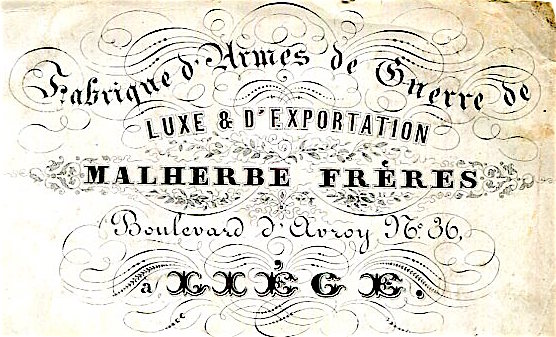 Fabrique d'Armes de Guerre de
LUXE & D'EXPORTATION
MALHERBE FRÈRES
Boulevard d'Avroy No. 36,
à LIÉGE.